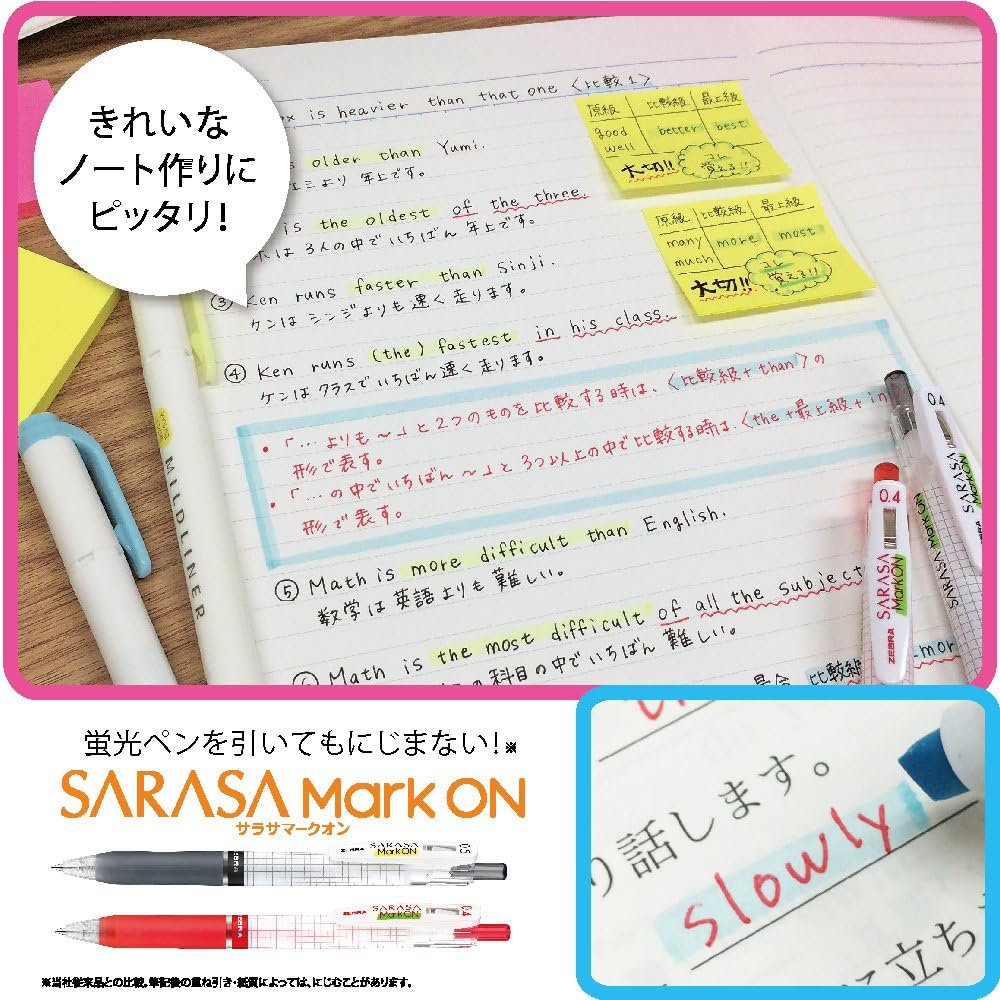 きれいな
ノート作りに
ピッタリ!
is heavier than that one 〈比較1〉
older than Yumi.
より 年上です。
is the oldest of the three.
は 3人の中でいちばん 年上です。
③ Ken runs faster than Sinji.
ケンは シンジよりも 速く 走ります。
④ Ken runs (the) fastest in his class.
ケンは クラスで いちばん 速く 走ります。
原級 比較級 最上級
good better best
well
大切!! コレ
覚える!!
原級 比較級 最上級
many more most
much
大切!! コレ
覚える!!
・「…よりも〜」と2つのものを比較する時は、〈比較級+than〉の
形で表す。
・「…の中でいちばん〜」と3つ以上の中で比較する時は、〈the+最上級+in
形で表す。
⑤ Math is more difficult than English.
数学は英語よりも 難しい。
Math is the most difficult of all the subject
の科目の中でいちばん 難しい。
比較級
more
MILDLINER
0.4
SARASA
MarkON
ZEBRA
SARASA MarkON
0.4
SARASA
MarkON
蛍光ペンを引いてもにじまない!※
SARASA Mark ON
サラサマークオン
ZEBRA SARASA
MarkON 0.5
ZEBRA
ZEBRA SARASA
MarkON 0.4
ZEBRA
※当社従来品との比較。筆記後の重ね引き・紙質によっては、にじむことがあります。
り話します。
slowly
に立ち